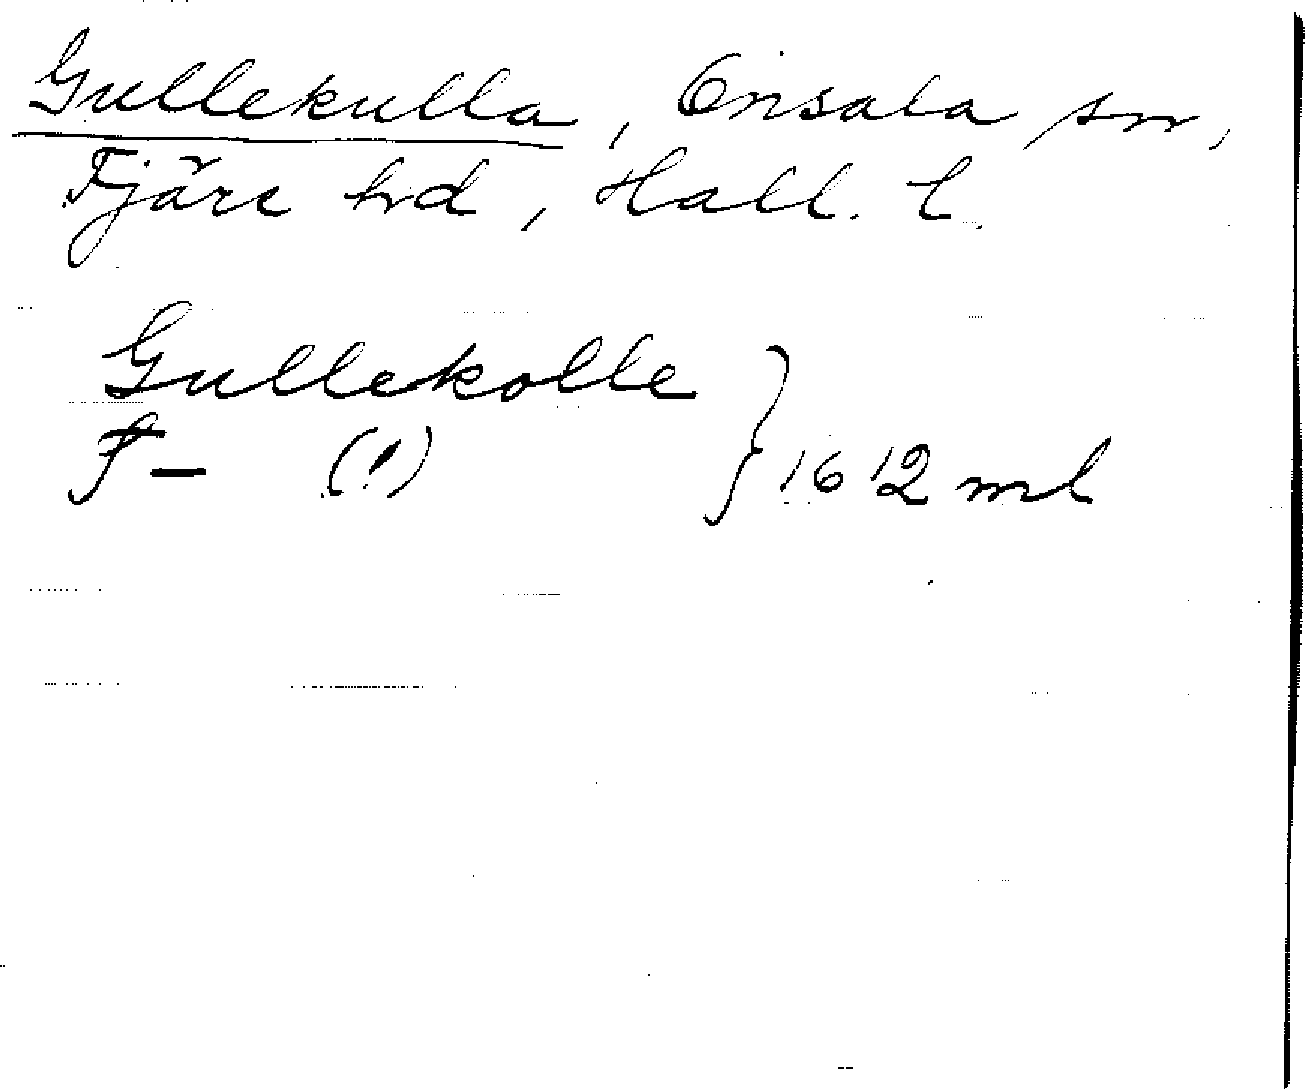 Gullekulla, Onsala sn,
Fjäre hd, Hall. l.
Gullekolle
F– (!) } 1612 ml